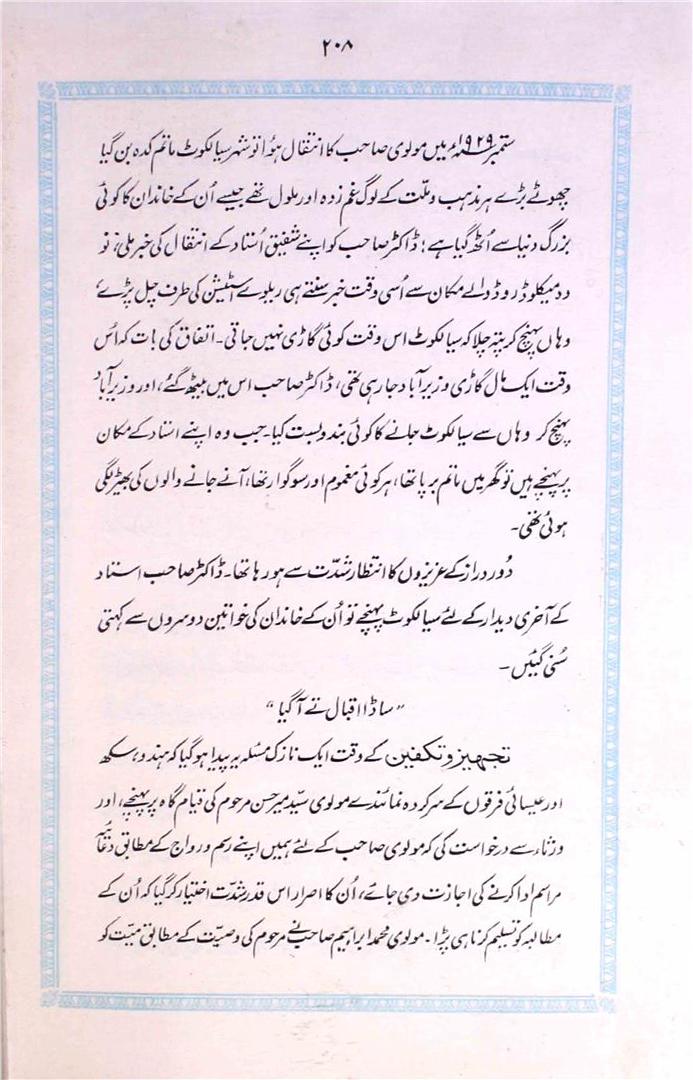 ۲۰۸
ستمبر ۱۹۲۹ء میں مولوی صاحب کا انتقال ہؤا تو شہر سیالکوٹ ماتم کدہ بن گیا
چھوٹے بڑے ہر مذہب و ملّت کے لوگ غم زدہ اور ملول تھے جیسے اُن کے خاندان کا کوئی
بزرگ دنیا سے اُٹھ گیا ہے؛ ڈاکٹر صاحب کو اپنے شفیق اُستاد کے انتقال کی خبر ملی، تو
وہ میکلوڈ روڈ والے مکان سے اُسی وقت خبر سنتے ہی ریلوے اسٹیشن کی طرف چل پڑے،
وہاں پہنچ کر پتہ چلا کہ سیالکوٹ اس وقت کوئی گاڑی نہیں جاتی۔ اتفاق کی بات کہ اُس
وقت ایک مال گاڑی وزیر آباد جا رہی تھی، ڈاکٹر صاحب اس میں بیٹھ گئے، اور وزیر آباد
پہنچ کر وہاں سے سیالکوٹ جانے کا کوئی بندوبست کیا۔ جب وہ اپنے استاد کے مکان
پر پہنچے ہیں تو گھر میں ماتم برپا تھا، ہر کوئی مغموم اور سوگوار تھا، آنے جانے والوں کی بھیڑ لگی
ہوئی تھی۔
دُور دراز کے عزیزوں کا انتظار شدّت سے ہو رہا تھا۔ ڈاکٹر صاحب استاد
کے آخری دیدار کے لئے سیالکوٹ پہنچے تو اُن کے خاندان کی خواتین دوسروں سے کہتی
سُنی گئیں۔
”ساڈا اقبال تے آ گیا“
تجہیز و تکفین کے وقت ایک نازک مسئلہ یہ پیدا ہو گیا کہ ہندو، سکھ
اور عیسائی فرقوں کے سرکردہ نمائندے مولوی سیّد میر حسن مرحوم کی قیام گاہ پر پہنچے، اور
ورثاء سے درخواست کی کہ مولوی صاحب کے لئے ہمیں اپنے رسم و رواج کے مطابق دعائیہ
مراسم ادا کرنے کی اجازت دی جائے، اُن کا اصرار اس قدر شدّت اختیار کر گیا کہ اُن کے
مطالبہ کو تسلیم کرنا ہی پڑا۔ مولوی محمد ابراہیم صاحب نے مرحوم کی وصیّت کے مطابق میّت کو